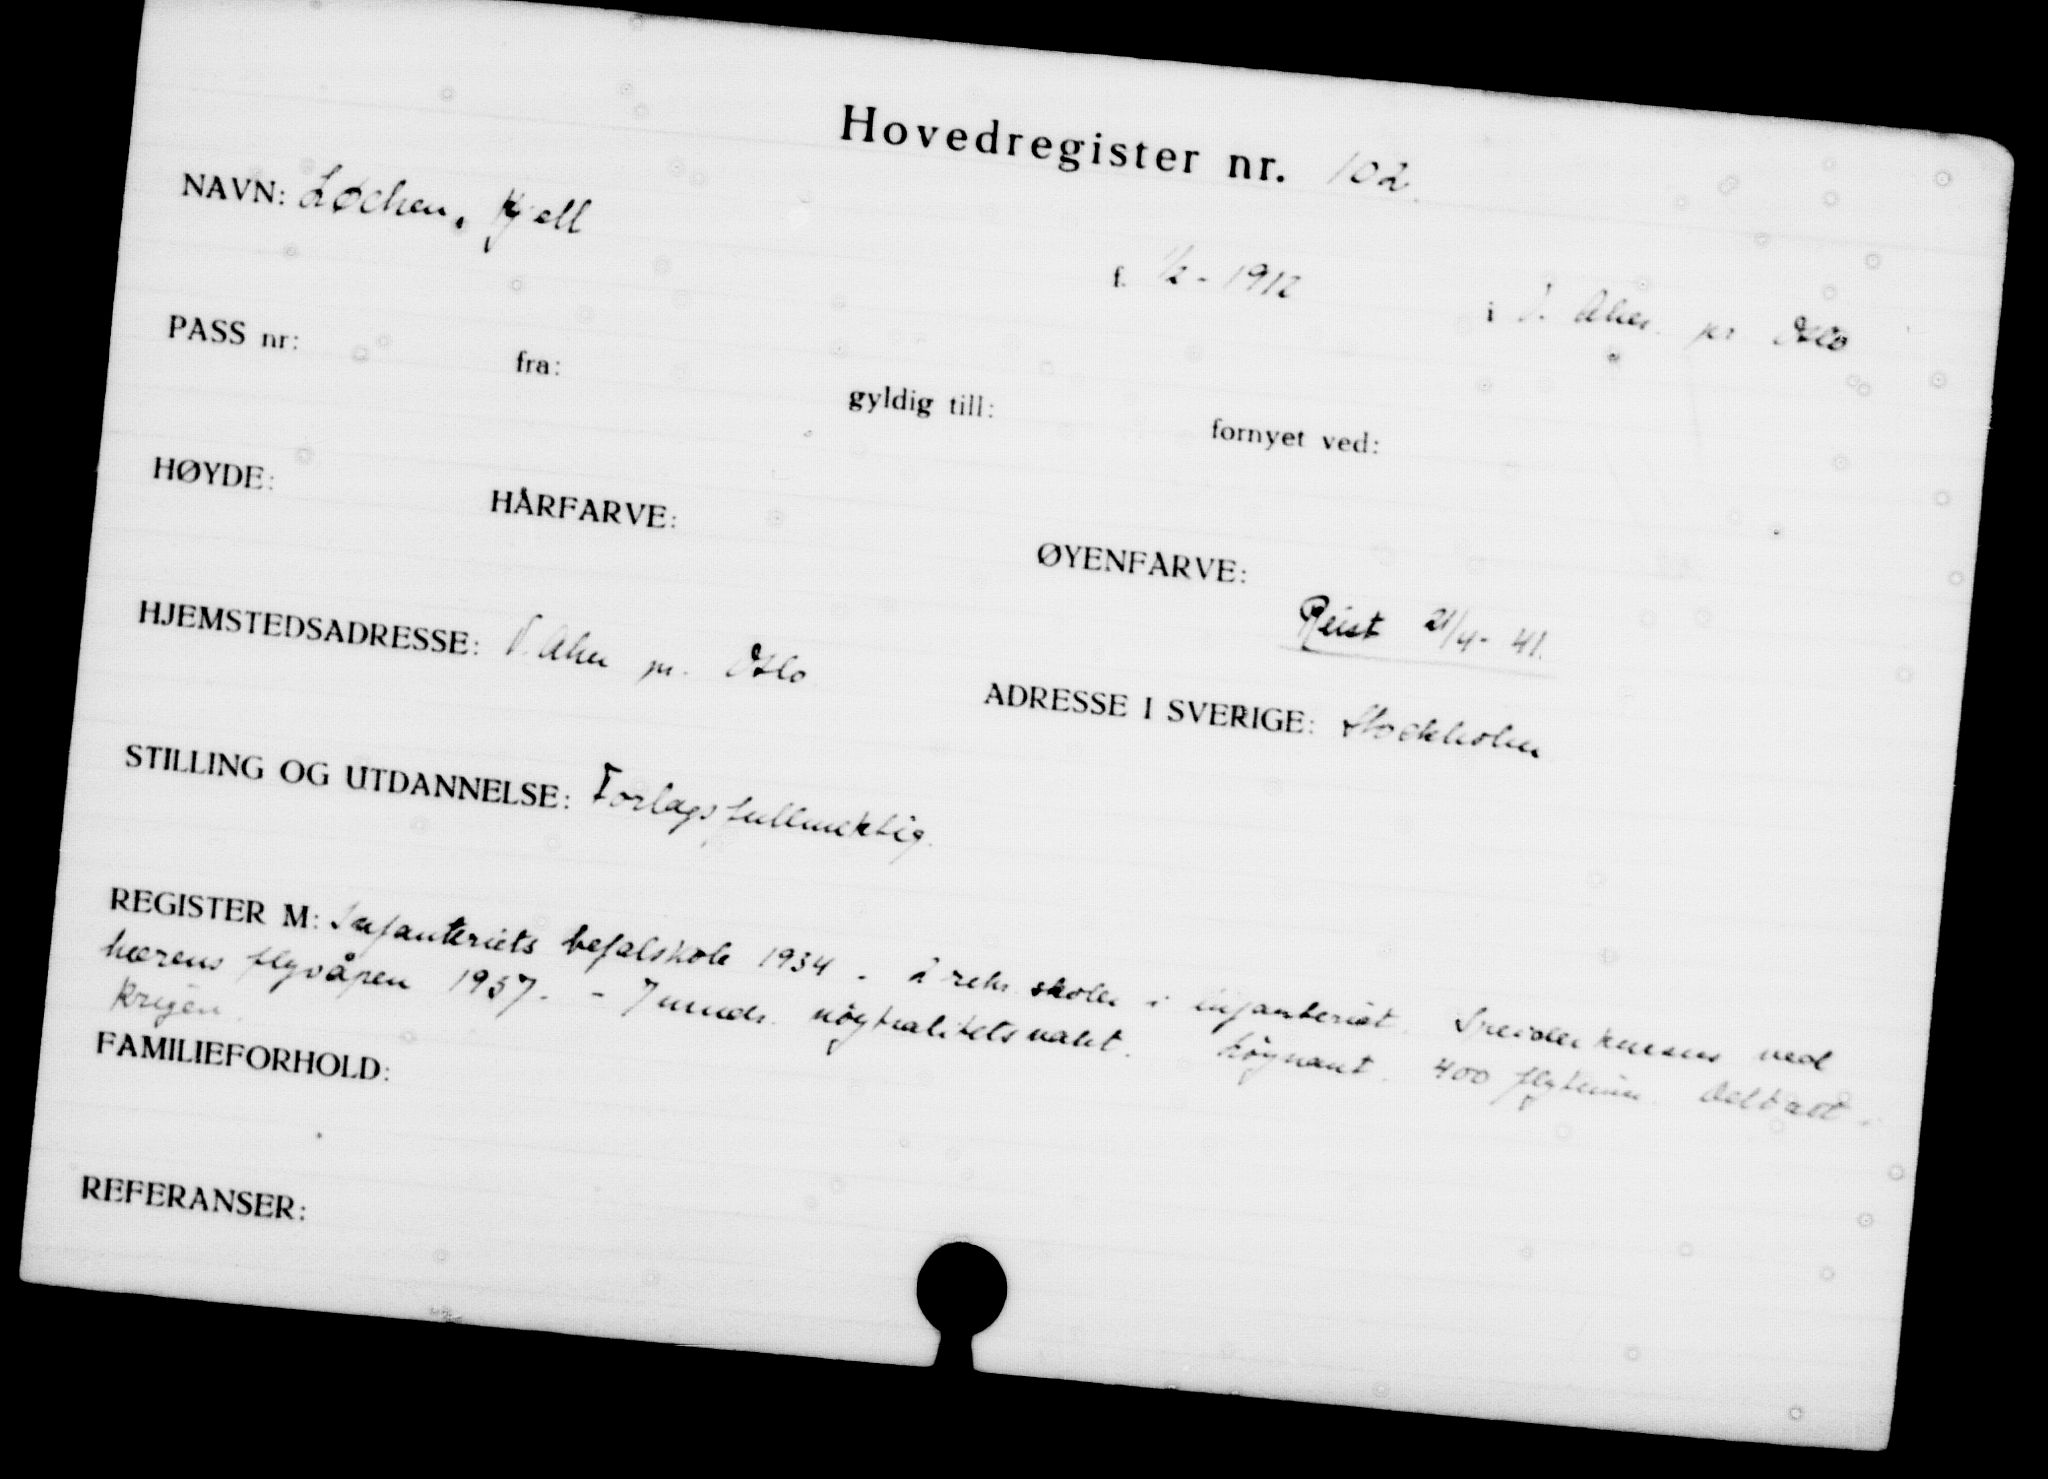 Hovedregister nr. 102.
NAVN: Løchen, Kjell
f. 1/2 - 1912 i V. Aker pr Oslo
PASS nr: fra: gyldig till: fornyet ved:
HØYDE: HÅRFARVE: ØYENFARVE:
Reist 21/4 - 41.
HJEMSTEDSADRESSE: V. Aker pr. Oslo ADRESSE I SVERIGE: Stockholm
STILLING OG UTDANNELSE: Forlagsfullmektig.
REGISTER M: Infanteriets befalskole 1934. 2 rekr. skoler i infanteriet. Speiderkursus ved
hærens flyvåpen 1937. - 7 mndr. nøytralitetsvakt. Løynant. 400 flytimer. Deltatt i
krigen.
FAMILIEFORHOLD:
REFERANSER: